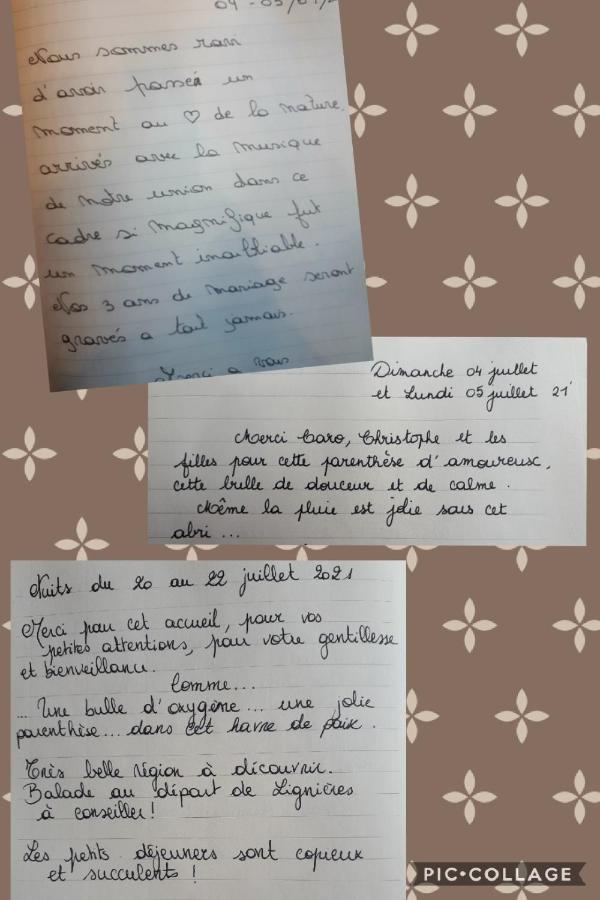 04 - 05/07/2
Nous sommes ravi
d'avoir passé un
moment au ♡ de la nature.
arrivés avec la musique
de notre union dans ce
cadre si magnifique fut
un moment inoubliable.
Nos 3 ans de mariage seront
gravés a tout jamais.
Merci a vous
Dimanche 04 juillet
et Lundi 05 juillet 21'
Merci Caro, Christophe et les
filles pour cette parenthèse d'amoureux,
cette bulle de douceur et de calme.
Même la pluie est jolie sous cet
abri ...
Nuits du 20 au 22 juillet 2021
Merci pour cet accueil, pour vos
petites attentions, pour votre gentillesse
et bienveillance.
Comme...
... Une bulle d'oxygène... une jolie
parenthèse... dans cet havre de paix.
Très belle région à découvrir.
Balade au départ de Lignières
à conseiller!
Les petits déjeuners sont copieux
et succulents !
PIC•COLLAGE